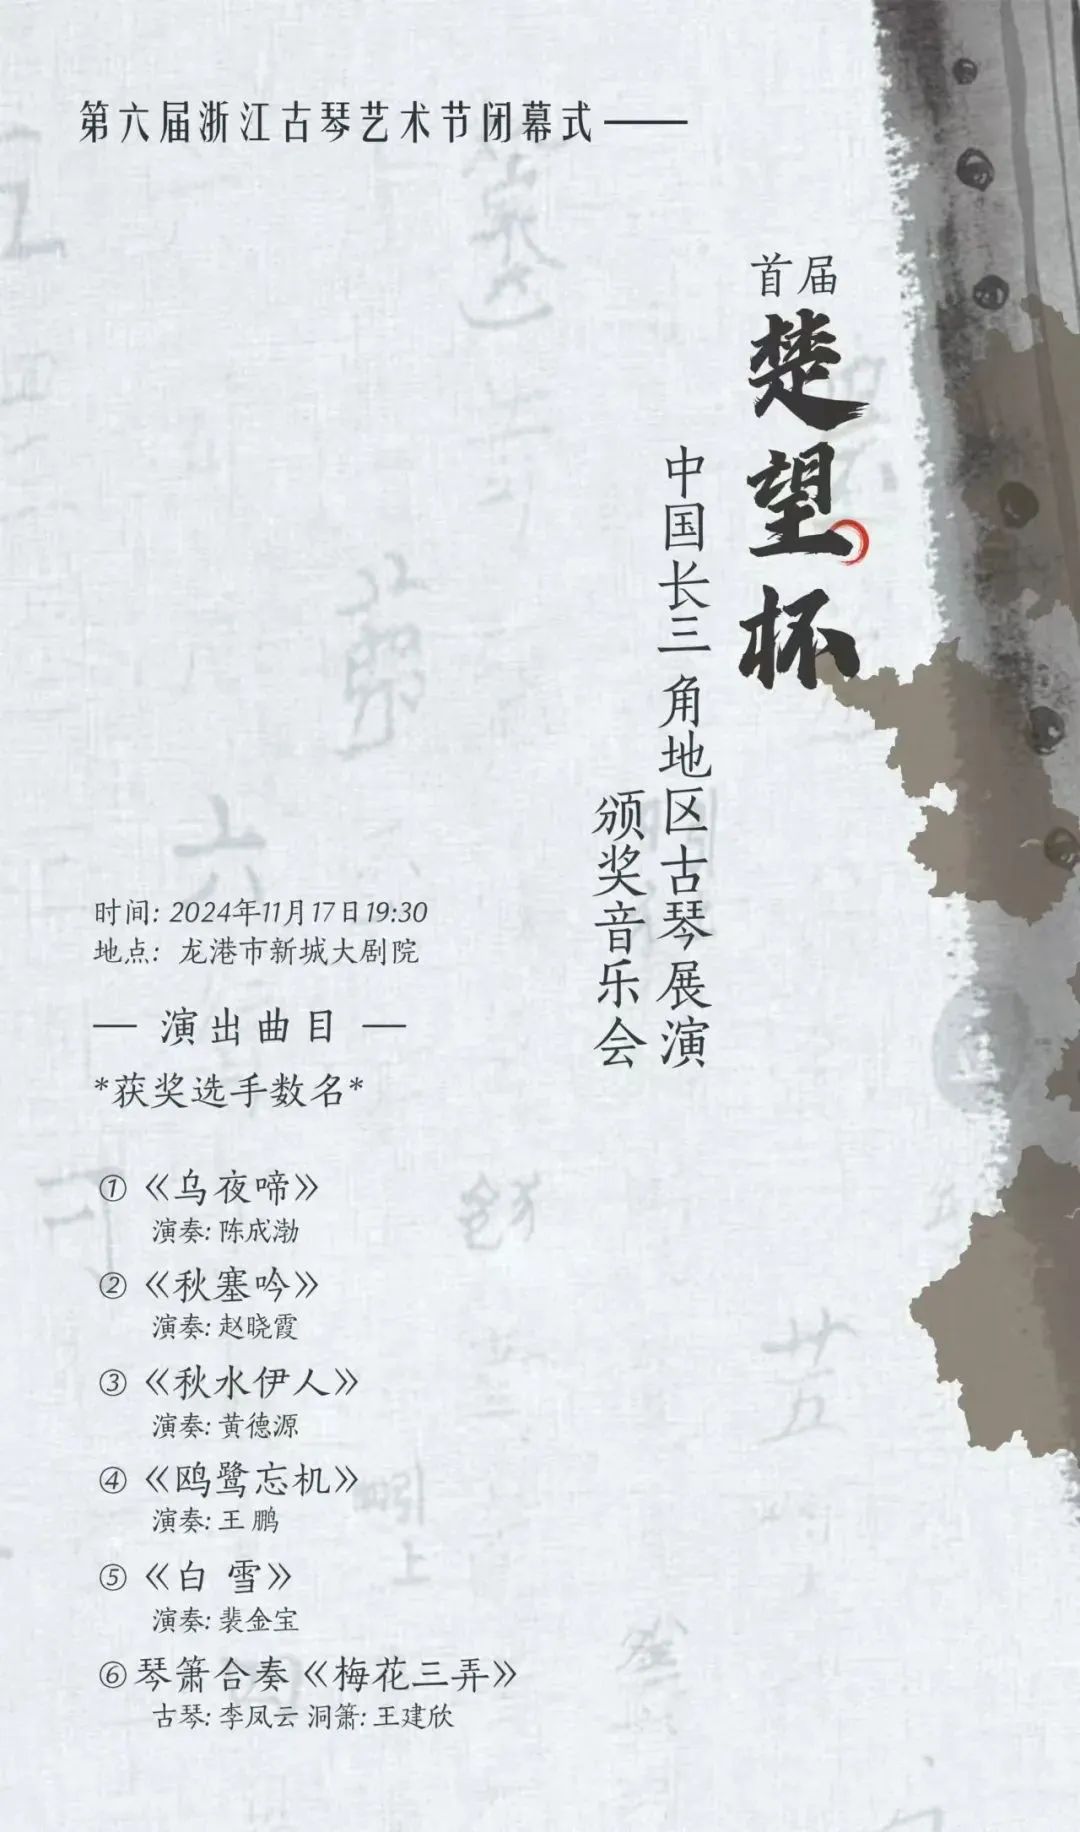 第六届浙江古琴艺术节闭幕式——
首届
楚望杯
中国长三角地区古琴展演
颁奖音乐会
时间: 2024年11月17日19:30
地点: 龙港市新城大剧院
— 演出曲目 —
*获奖选手数名*
① 《乌夜啼》
演奏: 陈成渤
② 《秋塞吟》
演奏: 赵晓霞
③ 《秋水伊人》
演奏: 黄德源
④ 《鸥鹭忘机》
演奏: 王 鹏
⑤ 《白 雪》
演奏: 裴金宝
⑥ 琴箫合奏《梅花三弄》
古琴: 李凤云 洞箫: 王建欣